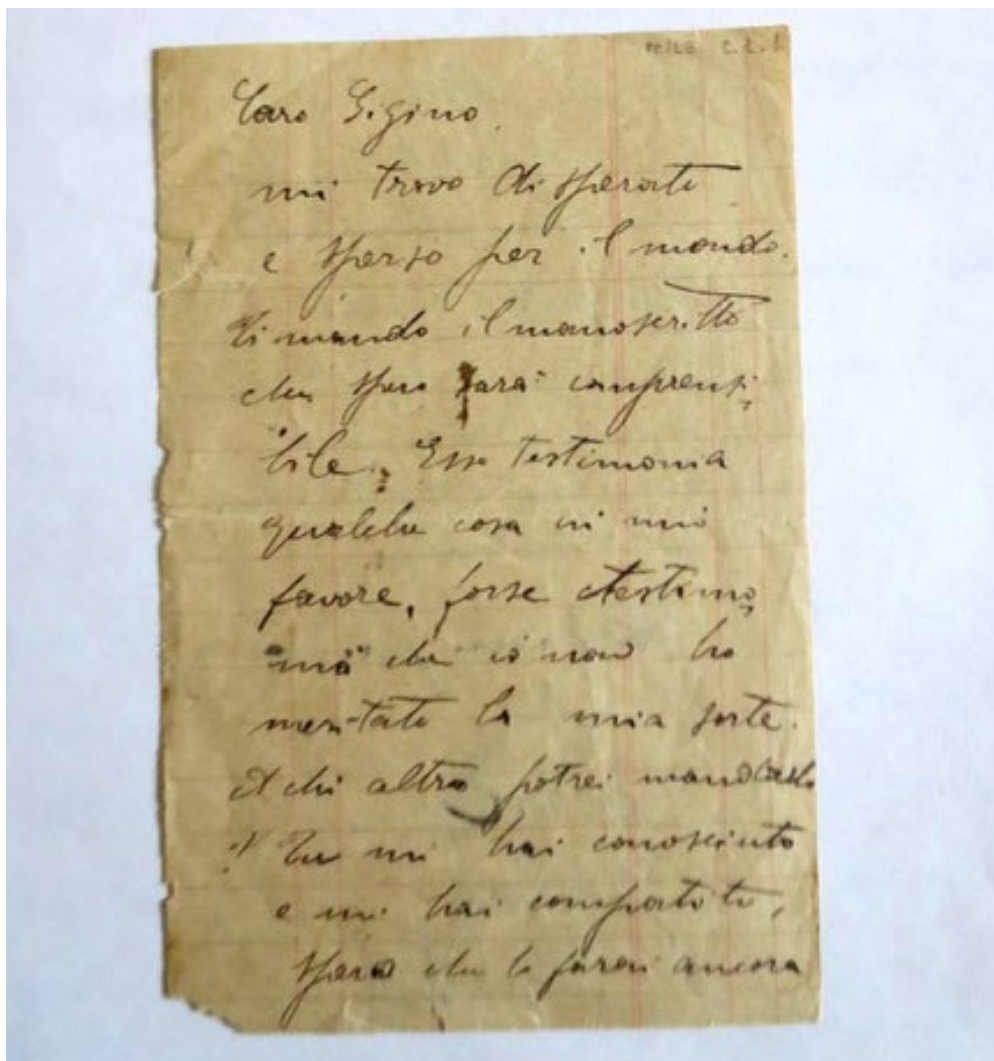 C.L.1
Caro Gigino.
mi trovo disperato
e sperso per il mondo.
Ti mando il manoscritto
che spero sarà comprensi,
"bile". Esso testimonia
qualche cosa in mio
favore, forse testimo,
"nia" che io non ho
meritato la mia sorte.
A chi altro potrei mandarlo
? Tu mi hai conosciuto
e mi hai compatito,
spero che lo farai ancora